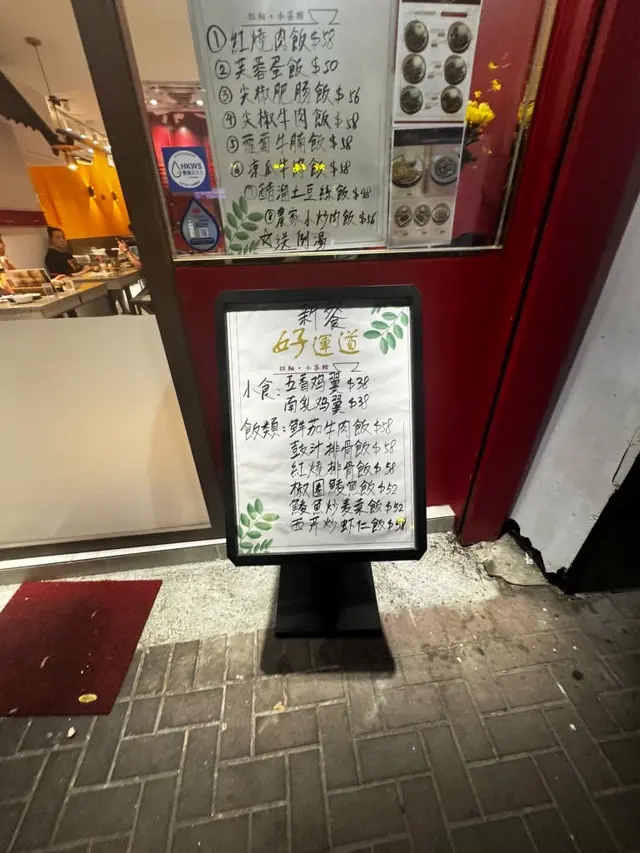 拉麵・小籠館
①紅燒肉飯$58
②芙蓉蛋飯$50
③尖椒肥肠飯$56
④尖椒牛肉飯$58
⑤蘿蔔牛腩飯$58
⑥凉瓜牛肉飯$58
⑦醋溜土豆絲飯$48
⑧農家小炒肉飯$56
HKWS
好運道
拉麵・小籠館
小食:五香鸡翼$38
南乳鸡翼$38
飯類:鮮茄牛肉飯$58
豉汁排骨飯$58
紅燒排骨飯$58
椒圈鯪魚飯$52
鯪魚炒麦菜飯$52
西芹炒虾仁飯$58